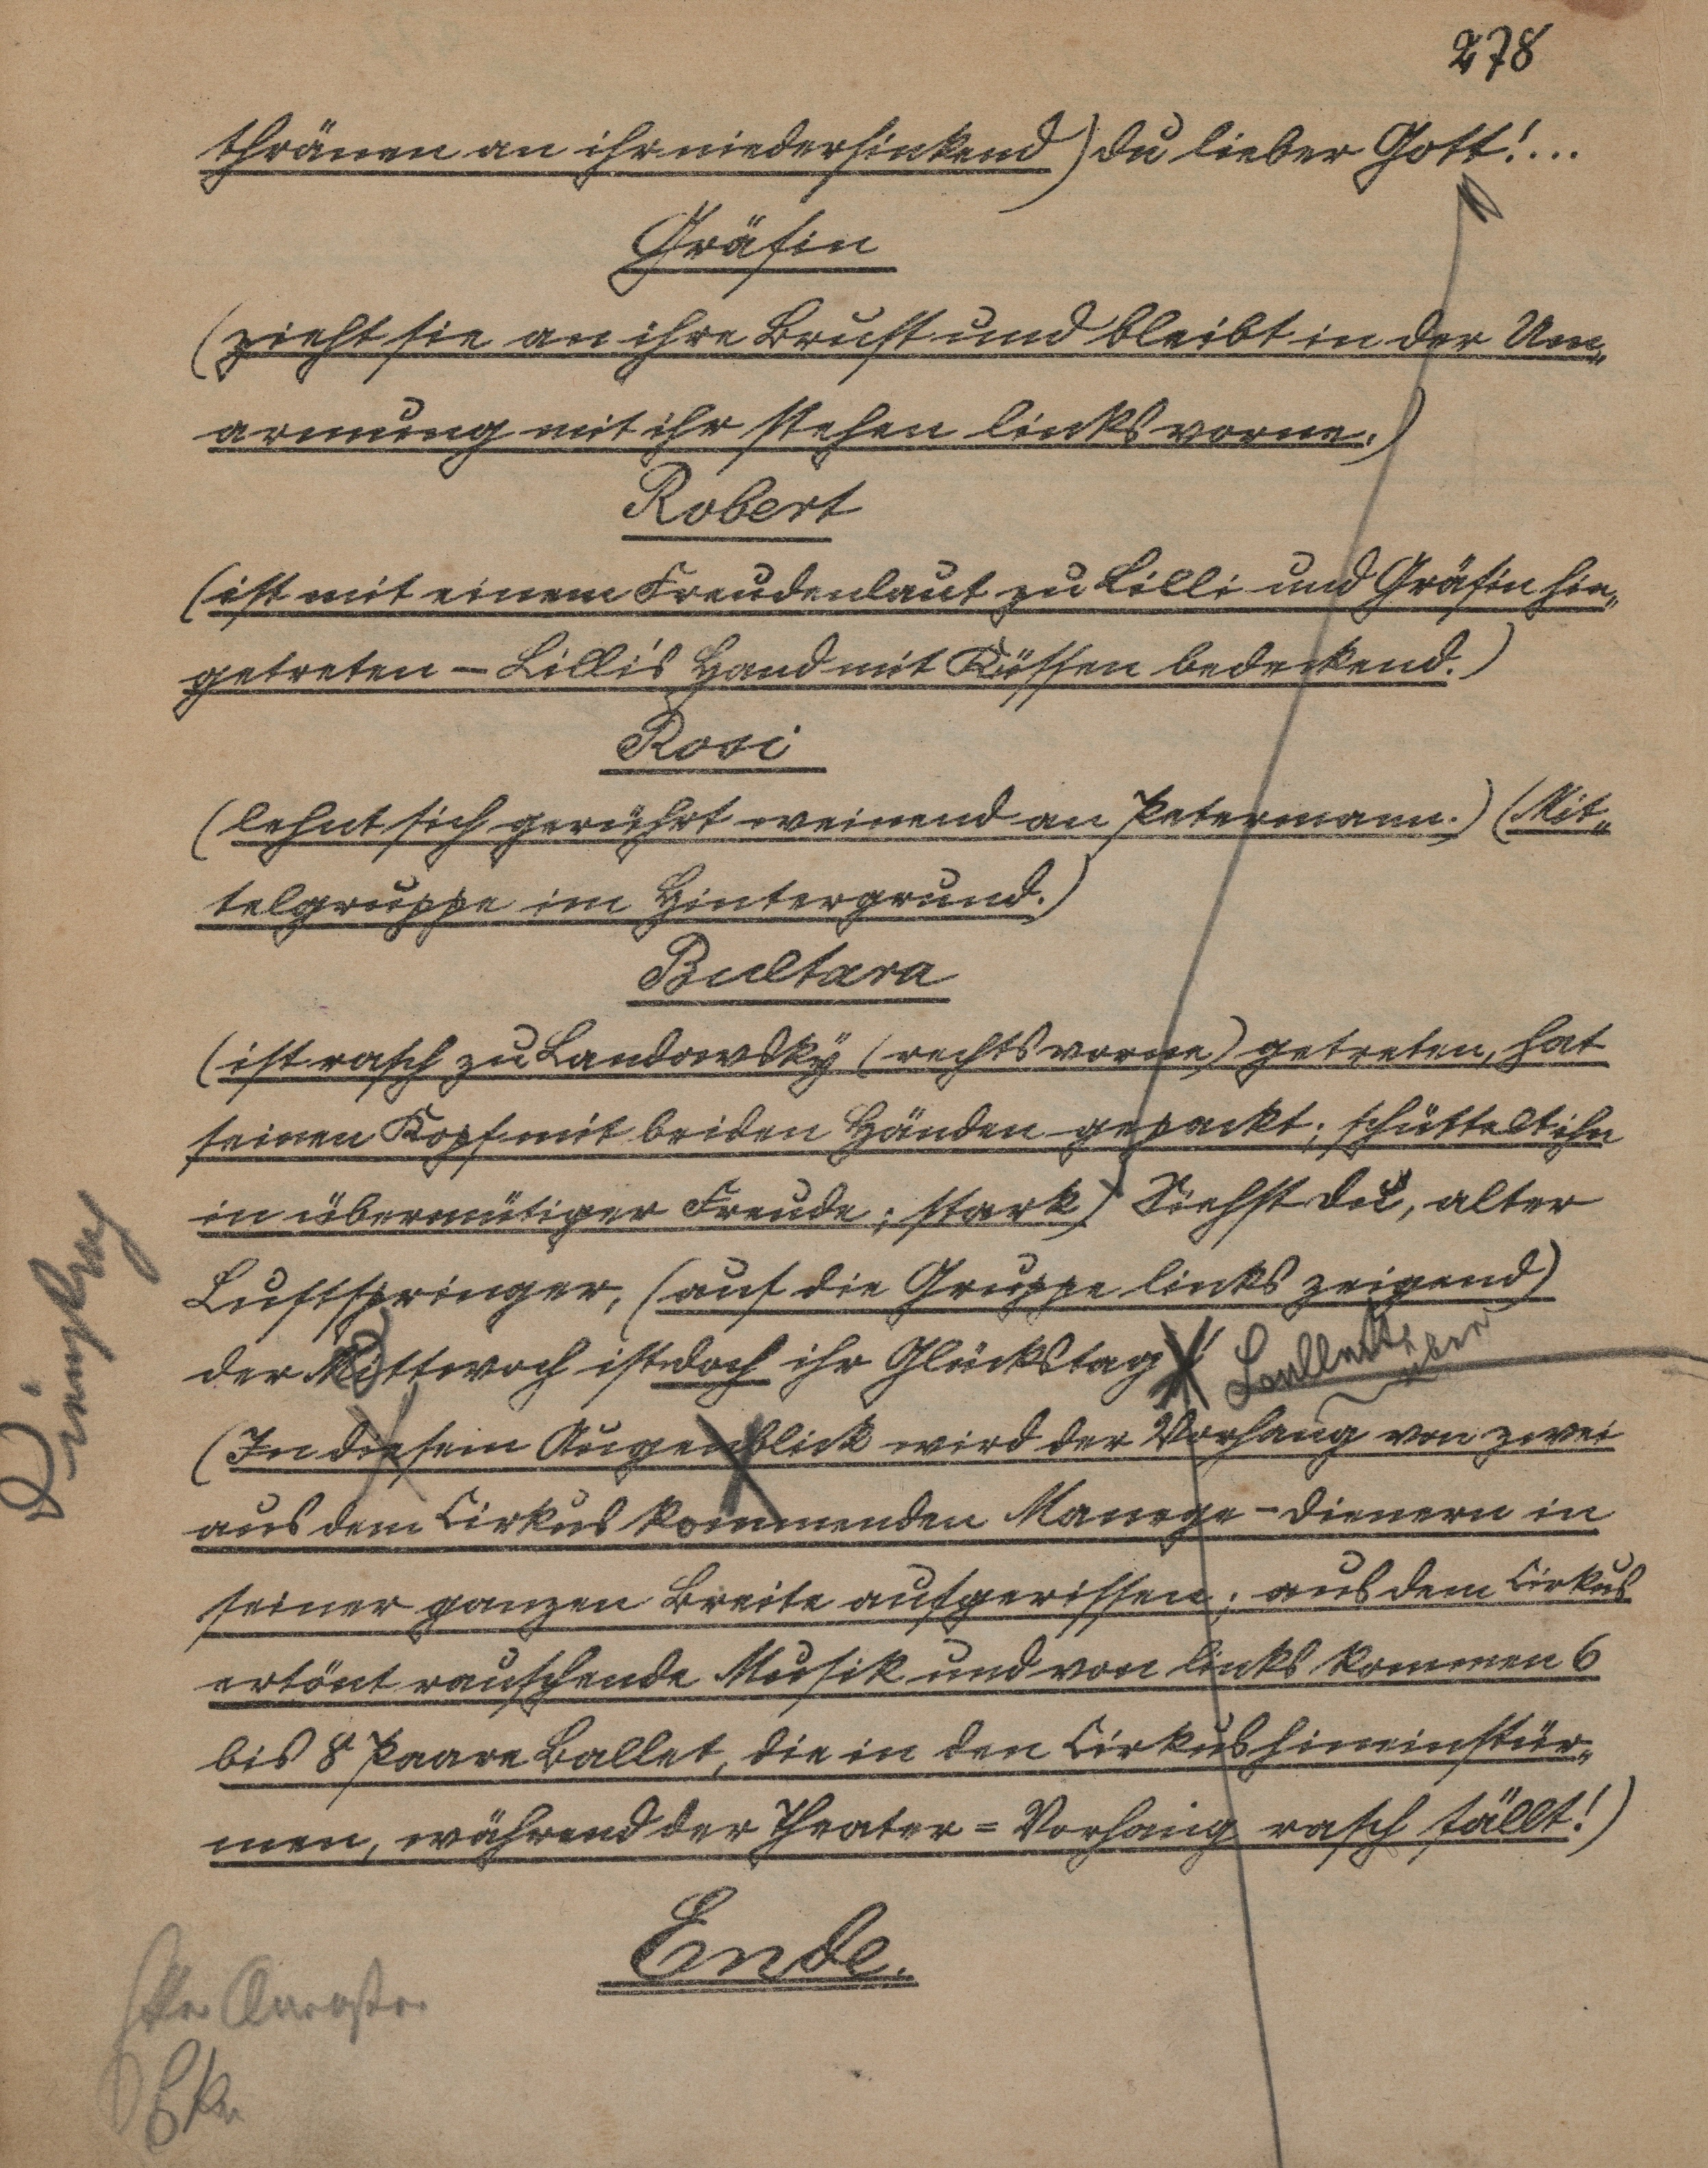 278
thränen an ihr niedersinkend) du lieber Gott!...
Gräfin
(zieht sie an ihre Brust und bleibt in der Um„
armung mit ihr stehen links vorne.)
Robert
(ist mit einem Freudenlaut zu Lilli und Gräfin hin„
getreten – Lilli's Hand mit Küssen bedeckend.)
Rosi
(lehnt sich gerührt weinend an Petermann.) (Mit„
telgruppe im Hintergrund.)
Bultara
(ist rasch zu Landowsky (rechts vorne) getreten, hat
seinen Kopf mit beiden Händen gepackt; schüttelt ihn
in übermütiger Freude; stark) Siehst du, alter
Luftspringer, (auf die Gruppe links zeigend)
der Mittwoch ist doch ihr Glückstag!
(In diesem Augenblick wird der Vorhang von zwei
aus dem Cirkus kommenden Manege-dienern in
seiner ganzen Breite aufgerissen; aus dem Cirkus
ertönt rauschende Musik und von links kommen 6
bis 8 Paare Ballet, die in den Cirkus hineinstür„
men, während der Theater=Vorhang rasch fällt!)
Ende.